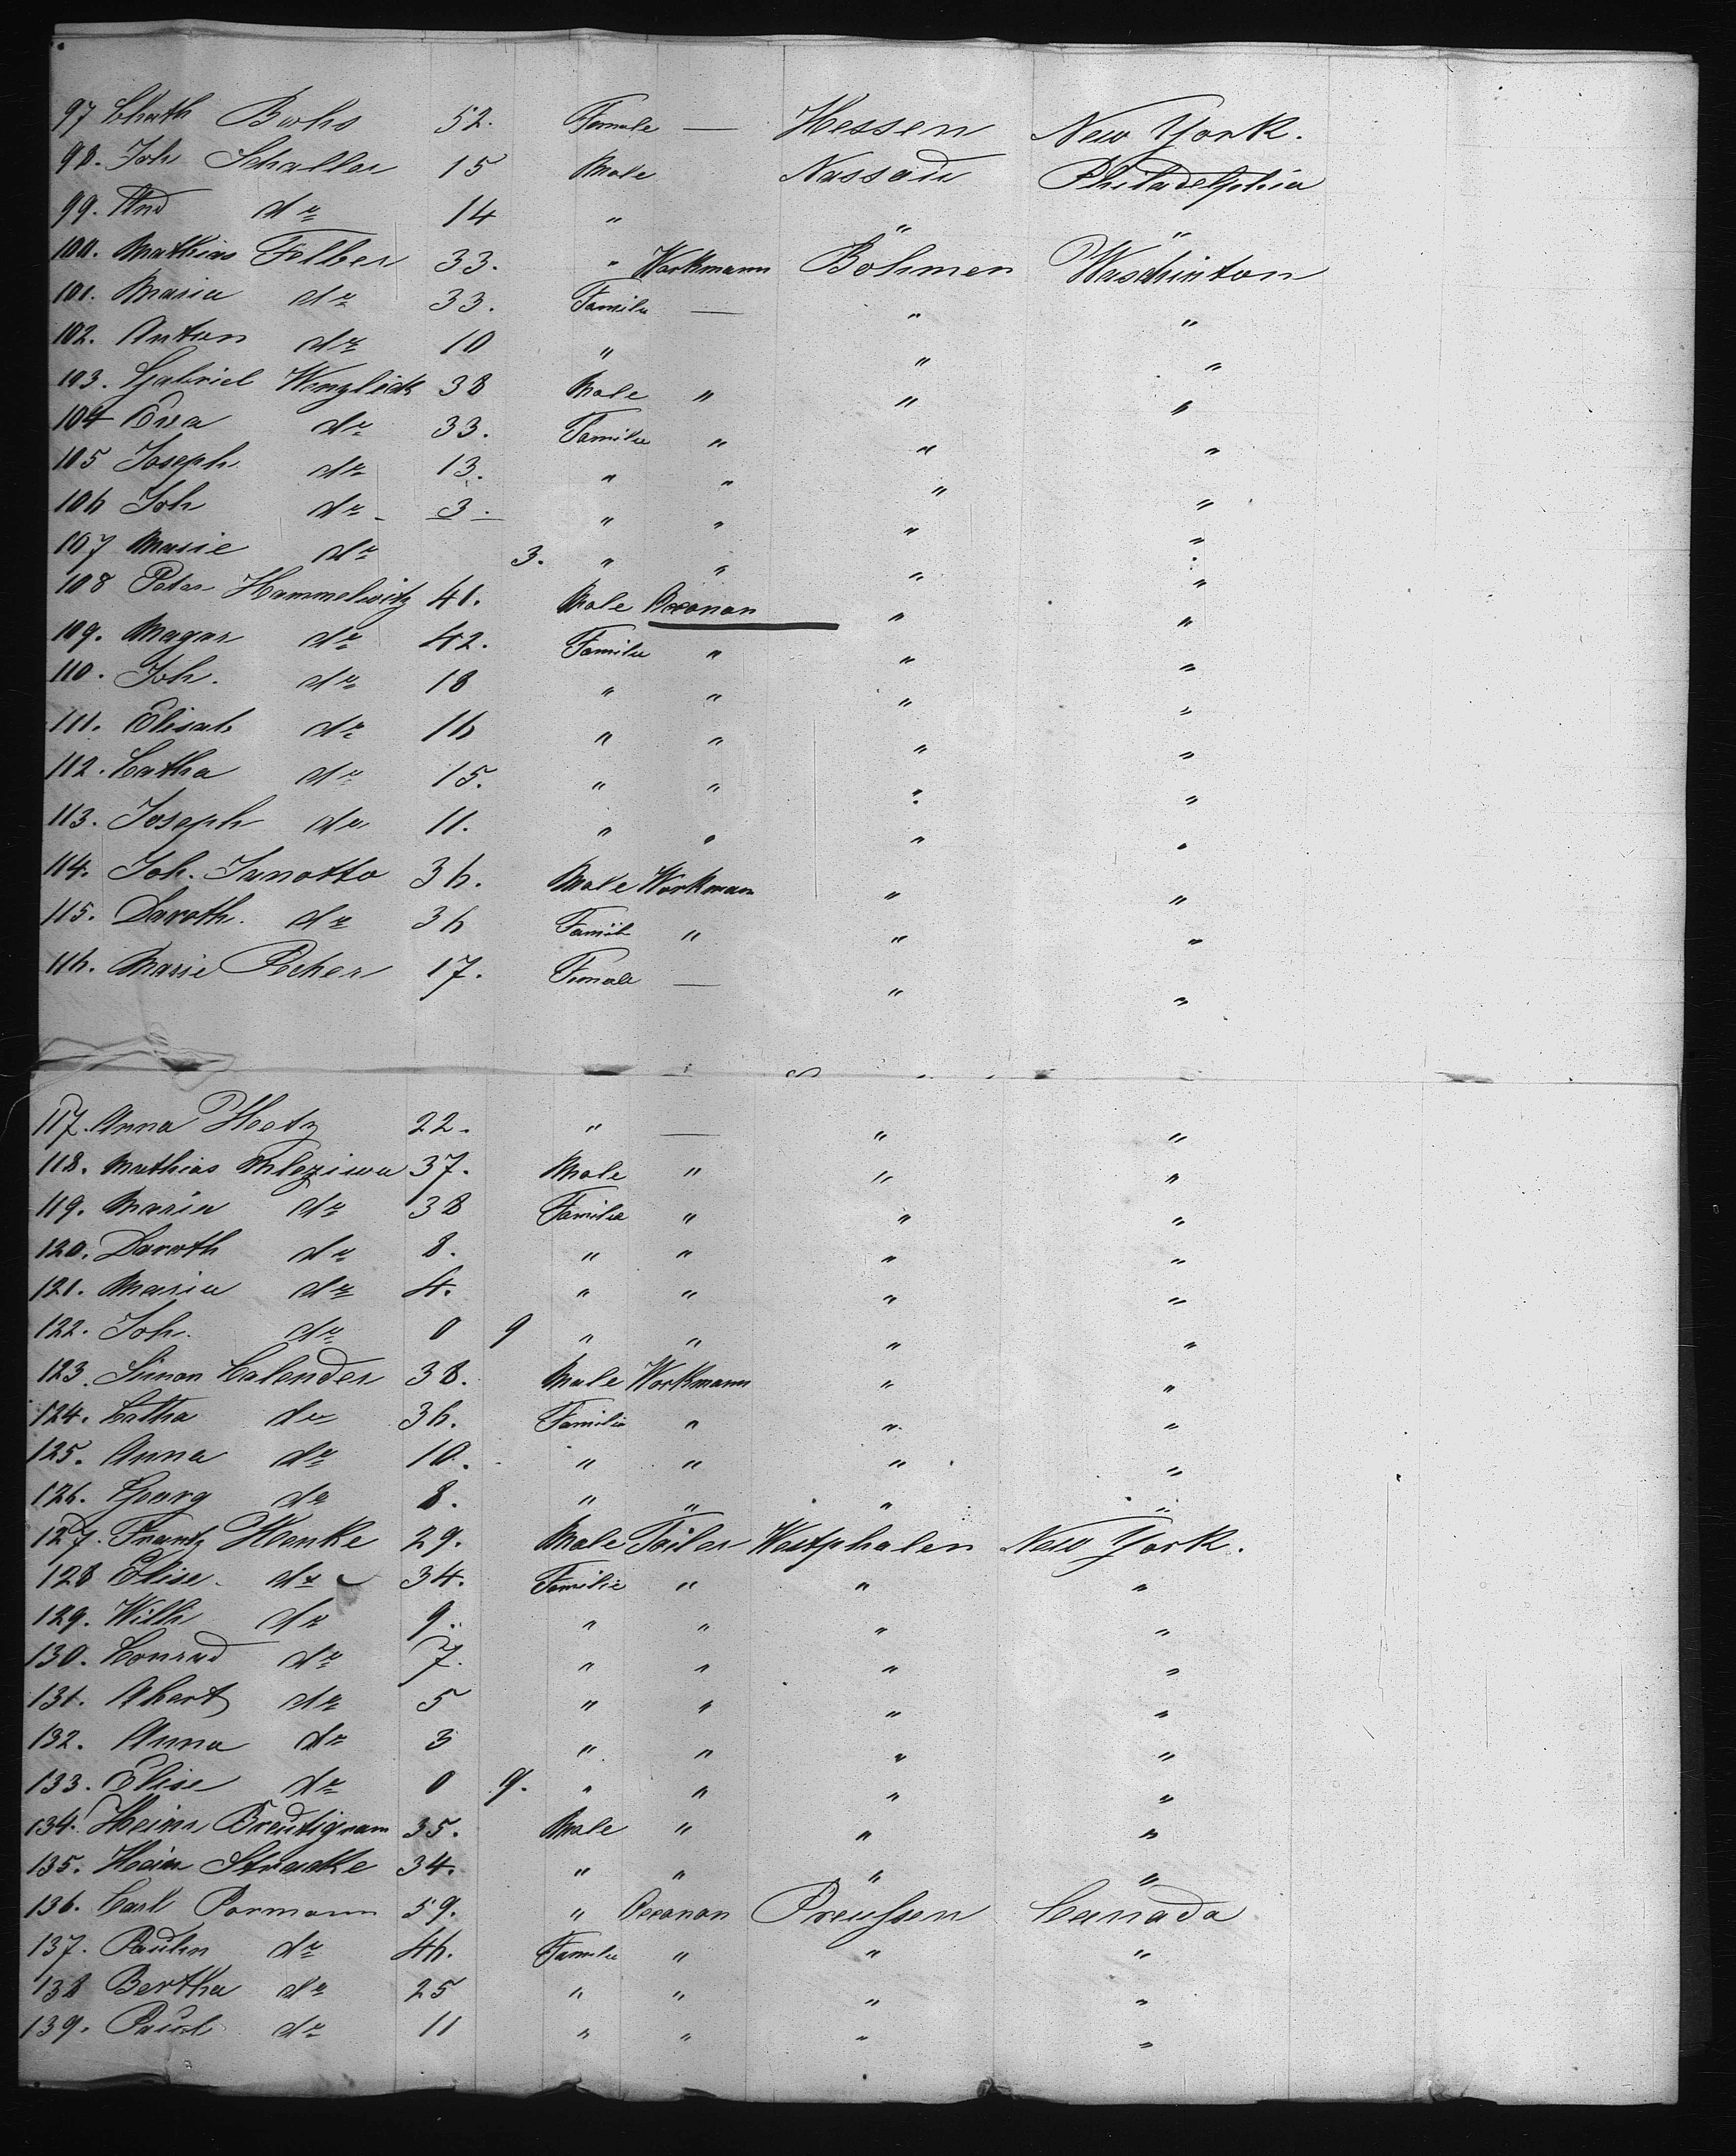 97 Chath Bohs 52. Female — Hessen New York.
98. Joh Schaller 15 Male Nassau Philadelphia
99. And do 14 " " "
100. Mathias Felber 33. " Workmann Böhmen Waschinton
101. Maria do 33. Familie — " "
102. Anton do 10 " " "
103. Gabriel Wenzlick 38 Male " " "
104 Eva do 33. Familie " " "
105 Joseph do 13. " " " "
106 Joh do - 3. " " " "
107 Marie do 3. " " " "
108 Peter Hammelwitz 41. Male Oeconon " "
109. Magar do 42. Familie " " "
110. Joh. do 18 " " " "
111. Elisab do 16 " " " "
112. Catha do 15. " " " "
113. Joseph do 11. " " " "
114. Joh. Janotta 36. Male Workmann " "
115. Doroth. do 36 Famili " " "
116. Marie Pecher 17. Female — " "
117. Anna Hetz 22. " — " "
118. Mathias Mleziwa 37. Male " " "
119. Maria do 38 Familie " " "
120. Doroth do 8. " " " "
121. Maria do 4. " " " "
122. Joh. do 0 9 " " " "
123. Simon Calender 38. Male Workmann " "
124. Catha do 36. Familie " " "
125. Anna do 10. " " " "
126. Georg do 8. " " " "
127. Frantz Henke 29. Male Tailer Westphalen New York.
128 Elise. do 34. Familie " " "
129. Wilh do 9. " " " "
130. Conrad do 7. " " " "
131. Albert do 5 " " " "
132. Anna do 3 " " " "
133. Elise do 0 9. " " " "
134. Heinr Breutignam 35. Male " " "
135. Heinr Struckle 34. " " " "
136. Carl Pormann 59. " Oeconon Preussen Canada
137. Paulin do 46. Familie " " "
138 Bertha do 25 " " " "
139. Paul do 11 " " " "